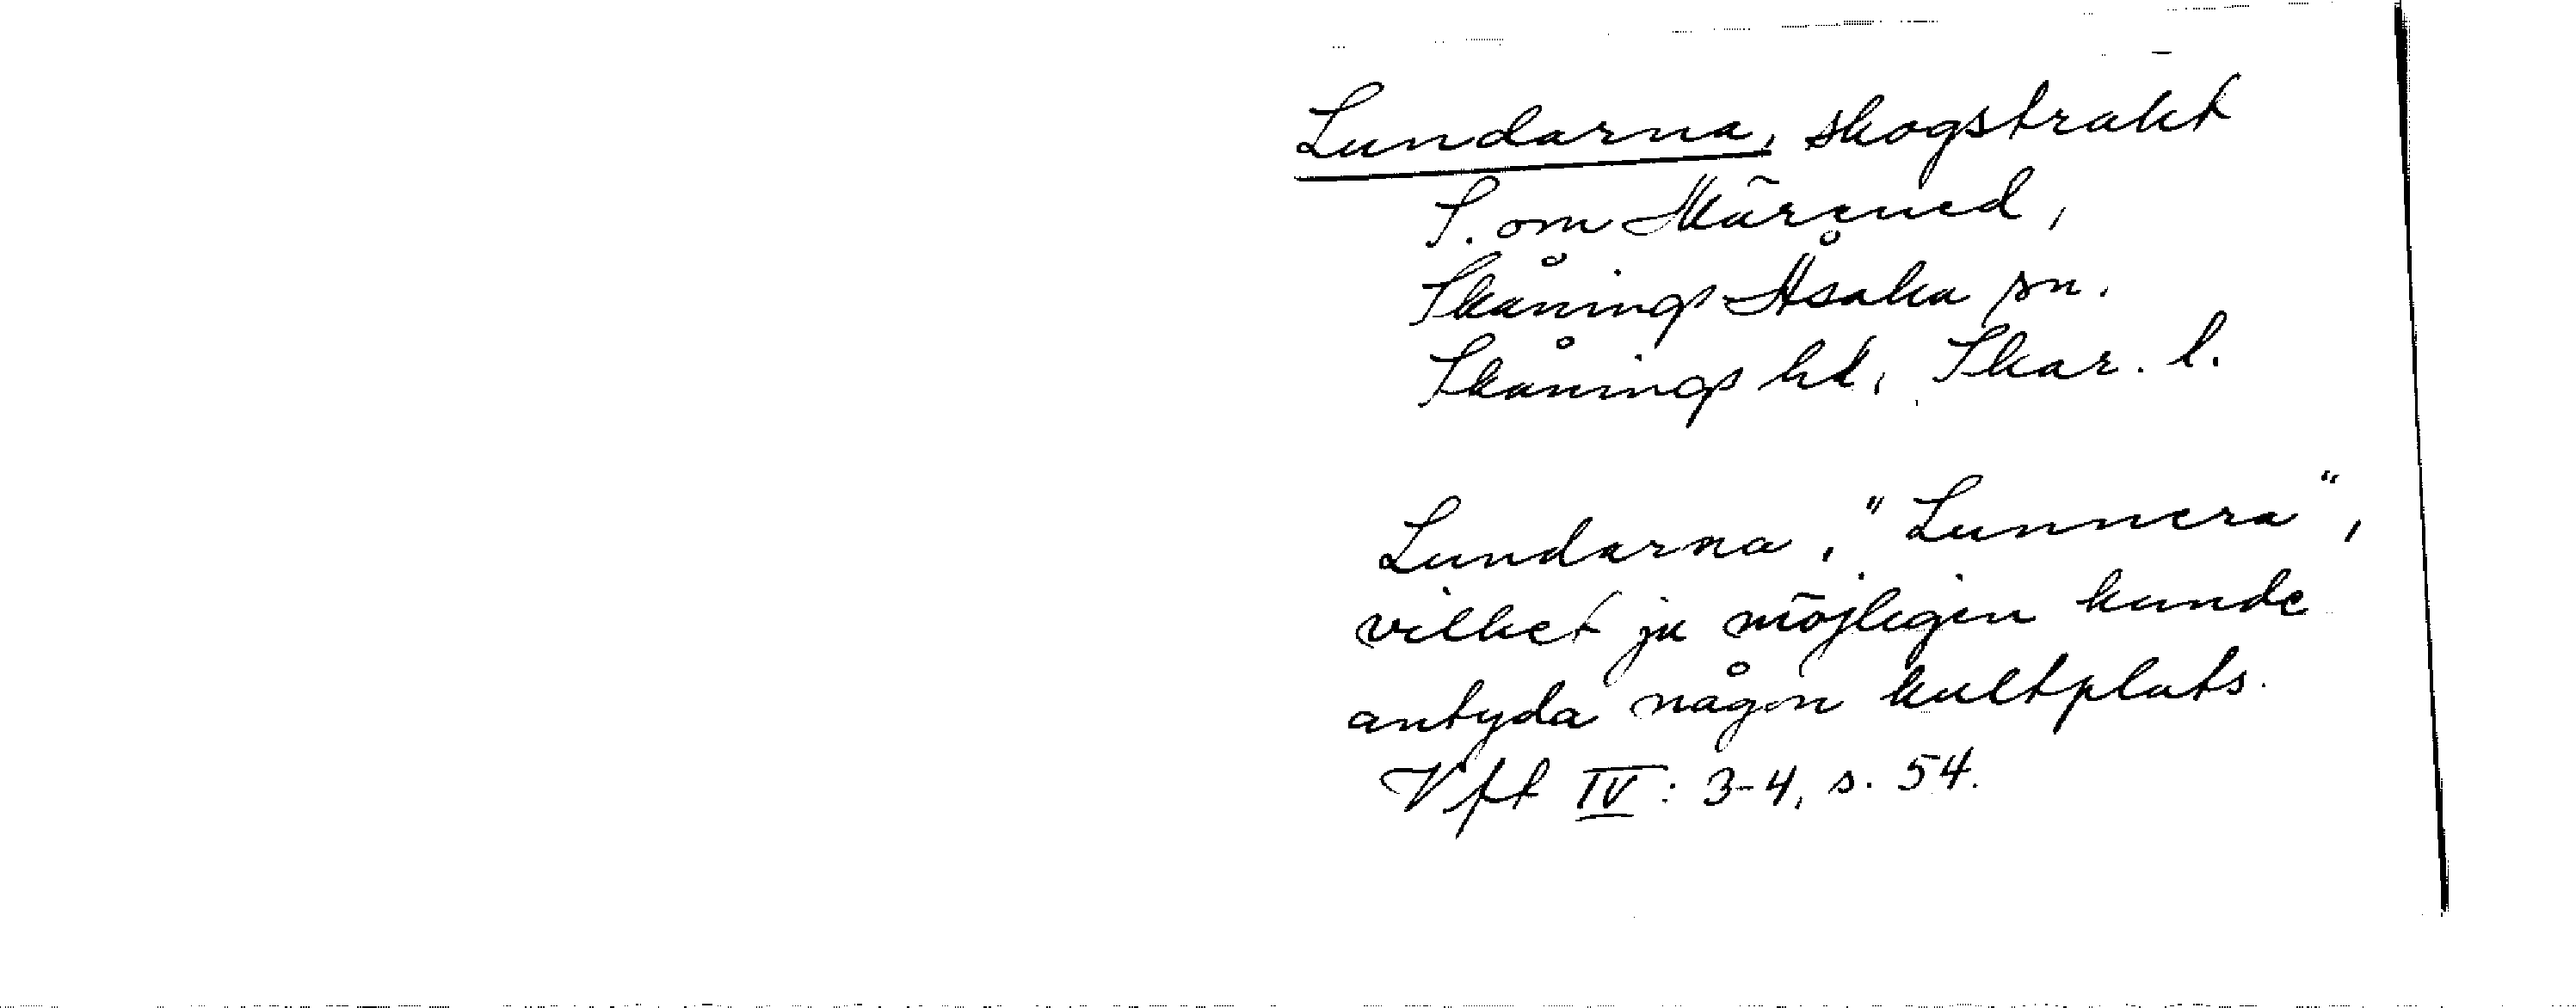 Lundarna, skogstrakt
S. om
Skånings-Åsaka sn.
Skånings hd, Skar. l.
Lundarna, "Lunnera",
vilket ju möjligen kunde
antyda någon kultplats.
Vft IV: 3-4, s. 54.